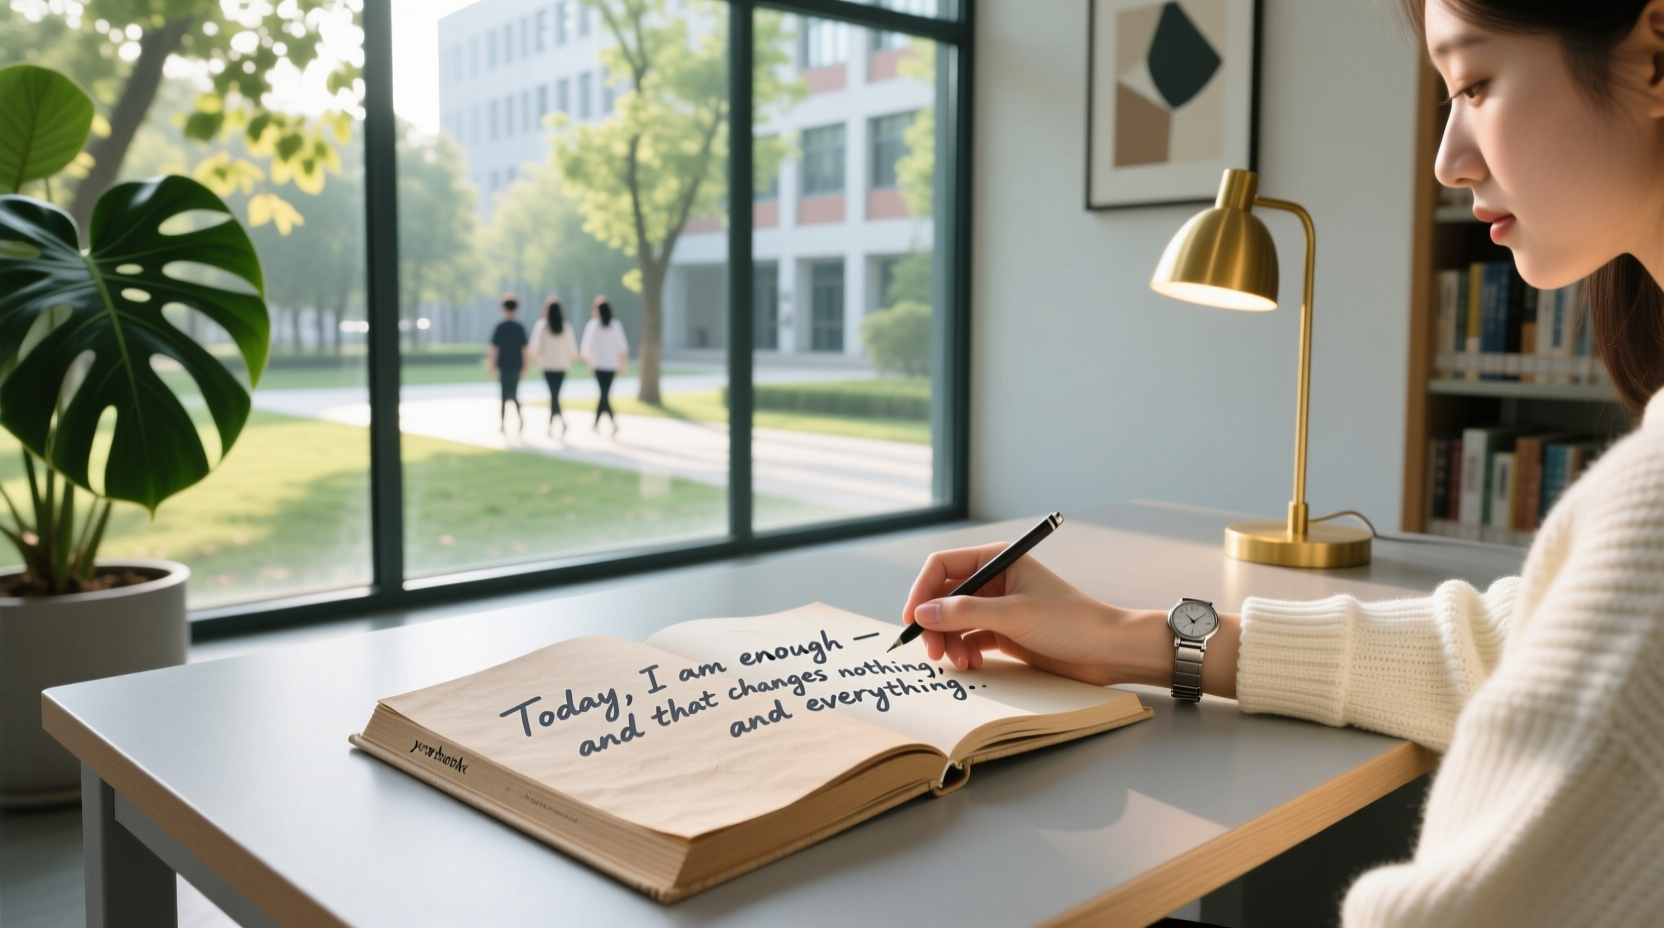 Today, I am enough —
and that changes nothing,
and everything..